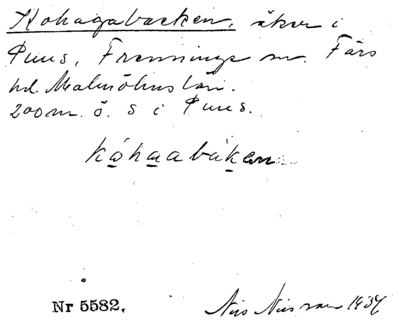 Kohagabacken, åker i
Puus, Frenninge sn. Färs
hd. Malmöhus län.
200 m. ö. S i Puus.
kóhaabákan
Nr 5582.
Nils Nilsson 1934